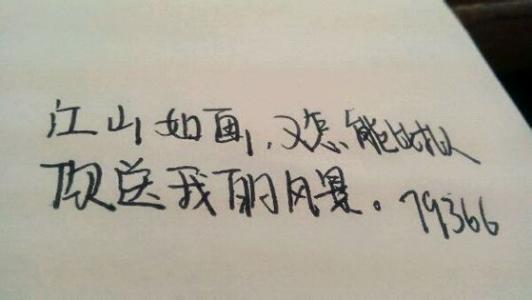 江山如画,又怎能比拟
送我的风景。79366